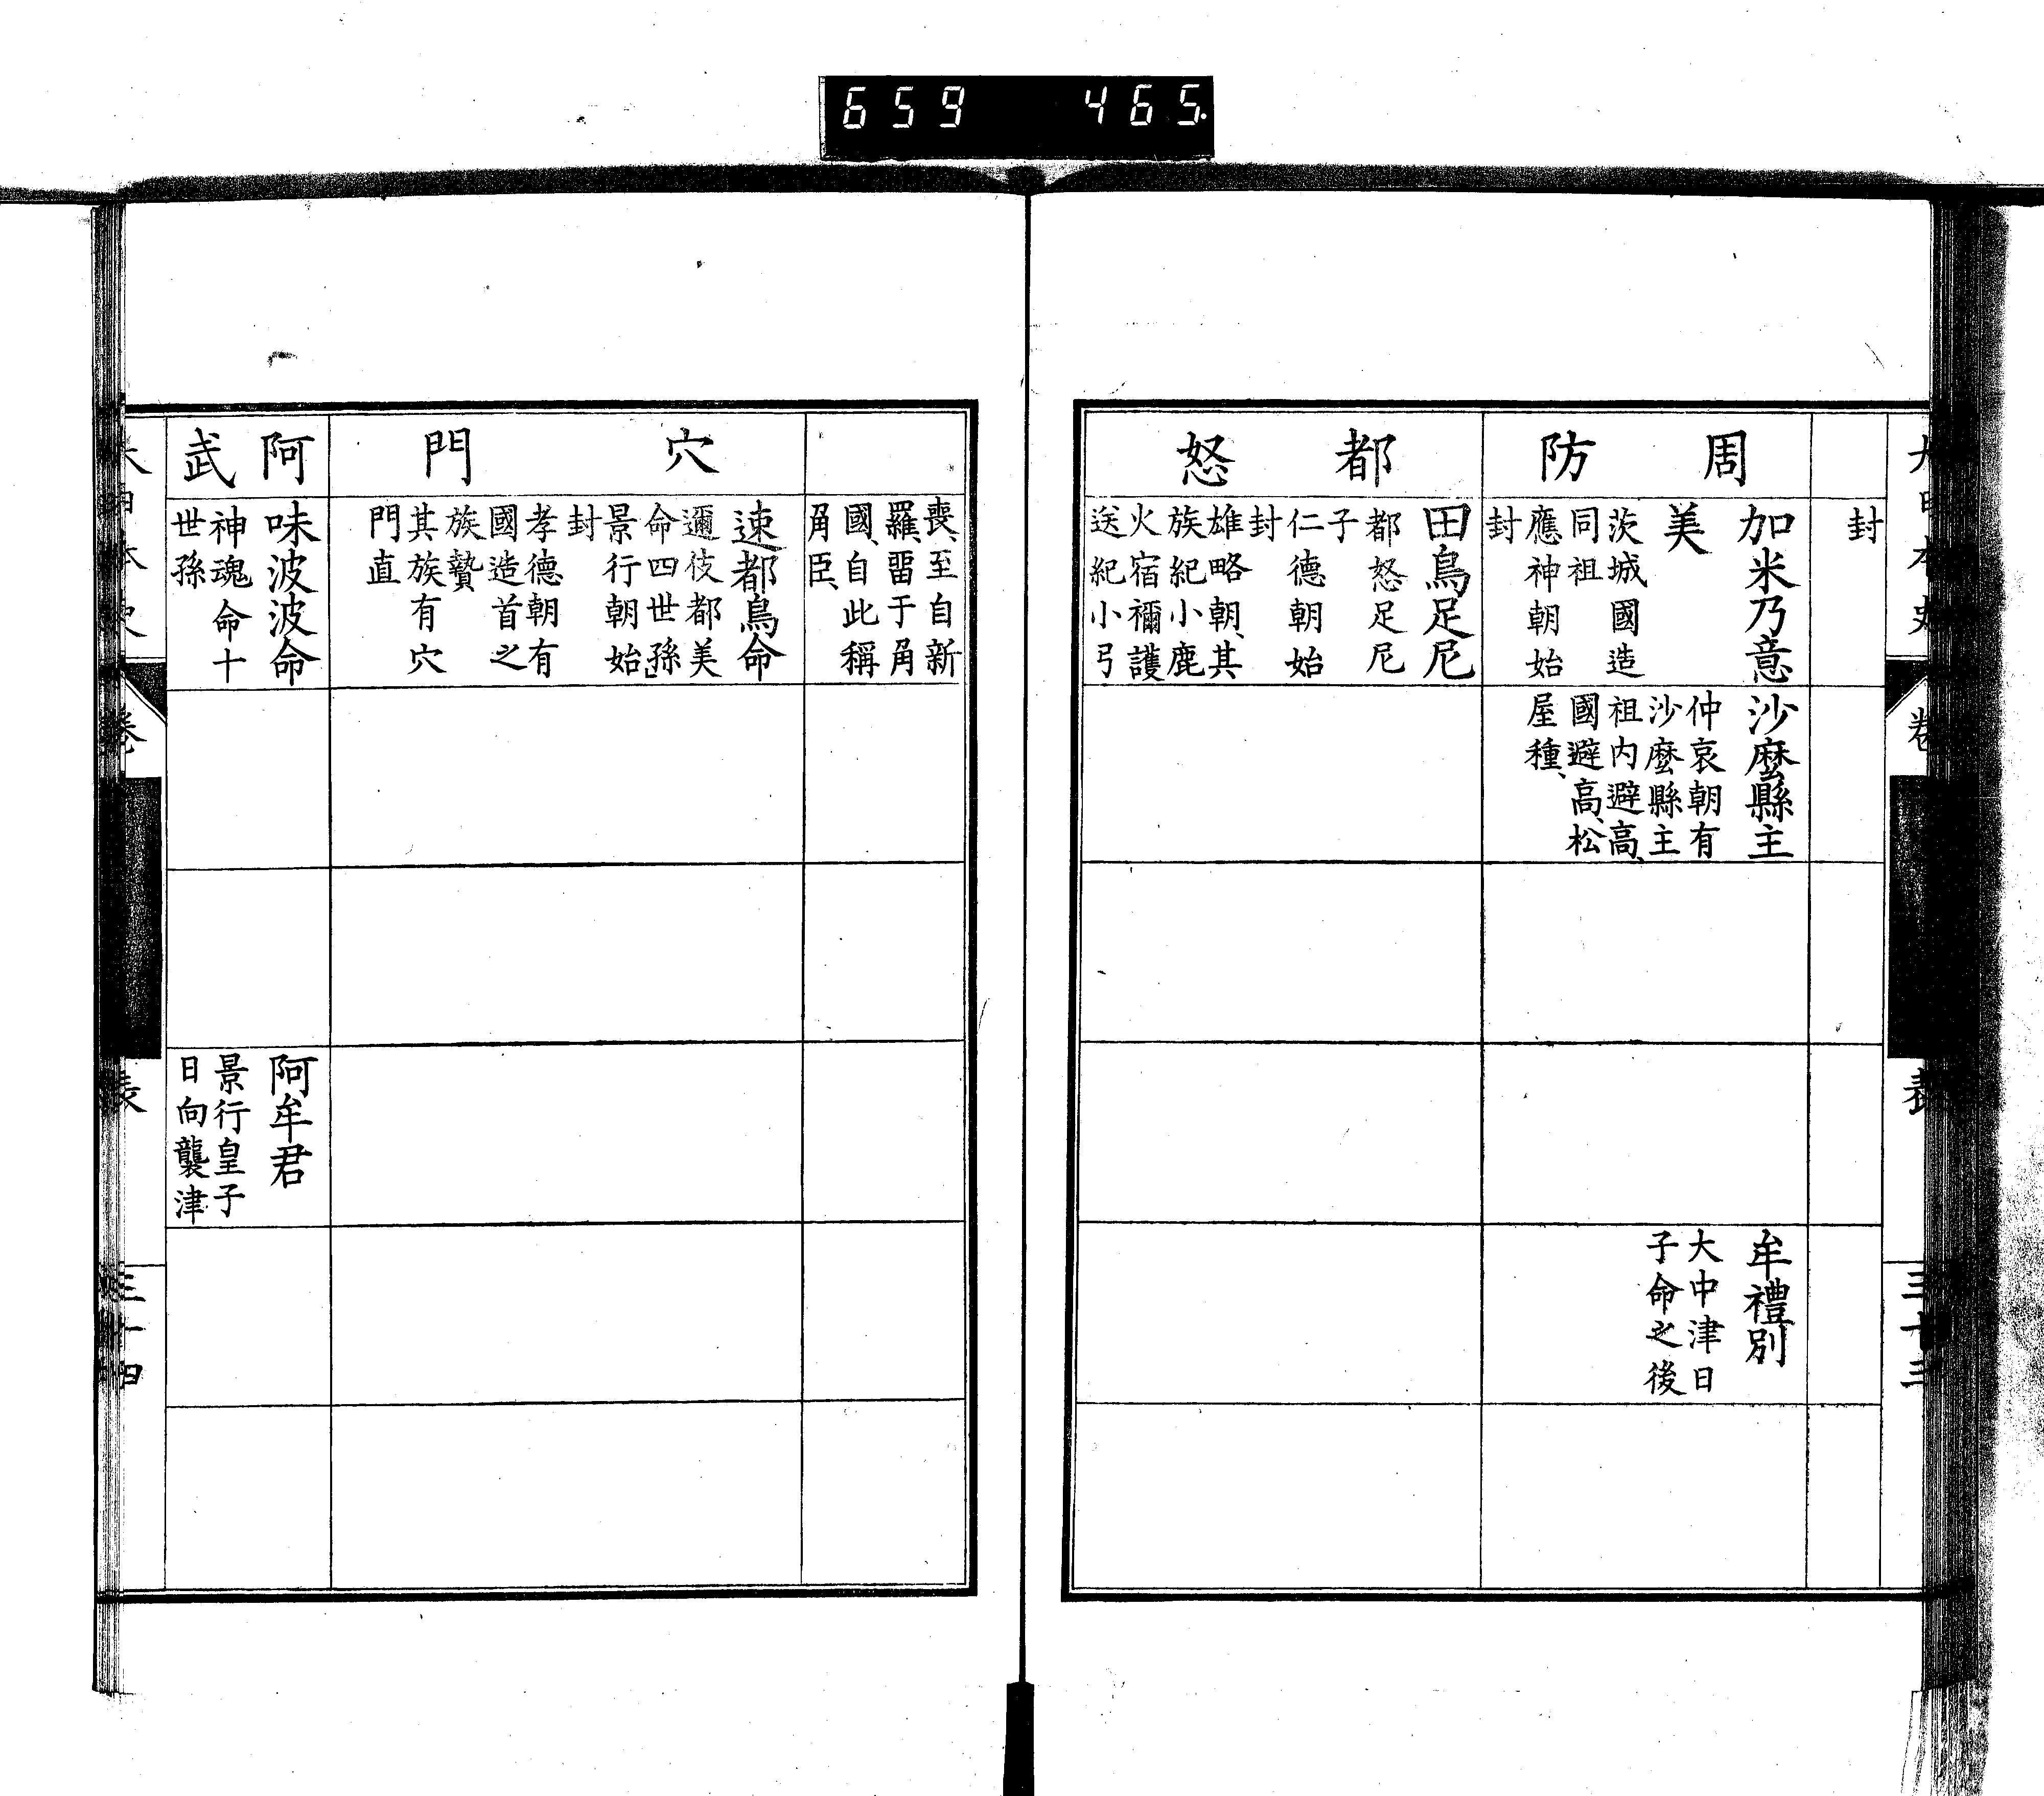 659 465.
封
周防
加米乃意
美
茨城國造
同祖
應神朝始
封
沙麼縣主
仲哀朝有
沙麼縣主
祖内避高、
國避高、松
屋種、
牟禮別
大中津日
子命之後
都怒
田鳥足尼
都怒足尼
子
仁德朝始
封
雄略朝、其
族紀小鹿
火宿禰護
送紀小弓
三十三
喪、至自新
羅、畱于角
國、自此稱
角臣、
穴門
速都鳥命
邇伎都美
命四世孫」
景行朝始
封
孝德朝有
國造首之
族贄
其族有穴
門直
阿武
味波波命
神魂命十
世孫
阿牟君
景行皇子
日向襲津